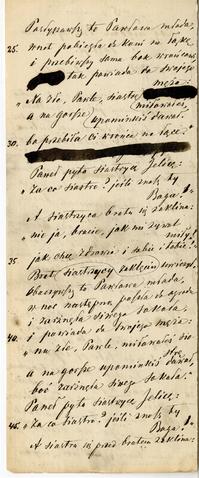 Posłyszawszy to Pawłowa młoda,
25. wnet pobiegła do koni na łąkę
i przebiwszy sama bok wronemu,
tak powiada do swojego
męża:
„Na złe, Pawle, siostrę
miłowałeś,
a na gorsze upominki dawał,
30. bo przebiła ci wronca na łące."
Paweł pyta siostrzyce Jelicę:
„Za co siostro? jeśli znasz ty
Boga!"
A siostrzyca bratu się zaklina:
„nie ja, bracie, jak mi żywot
miły!
35. jak chcę zdrowia i sobie i tobie!"
Brat siostrzycy zaklęciu uwierzył.
Obaczywszy to Pawłowa młoda,
w noc następną poszła do ogrodu
i zarżnęła siwego sokoła,
40. i powiada do swojego męża:
„na złe, Pawle, miłowałeś siostrę
a na gorsze upominki dawał,
boć zarżnęła siwego sokoła."
Paweł pyta siostrzyce Jelicę:
„Za co siostro? jeśli znasz ty
45. Boga!"
A siostra się przed bratem zaklina: